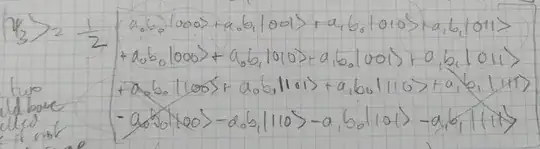 |ψ₃> = 1/2 [ a₀b₀|000> + a₀b₁|001> + a₁b₀|010> + a₁b₁|011>
+ a₀b₀|000> + a₀b₁|010> + a₁b₀|001> + a₁b₁|011>
+ a₀b₀|100> + a₀b₁|101> + a₁b₀|110> + a₁b₁|111>
- a₀b₀|100> - a₀b₁|110> - a₁b₀|101> - a₁b₁|111>
two